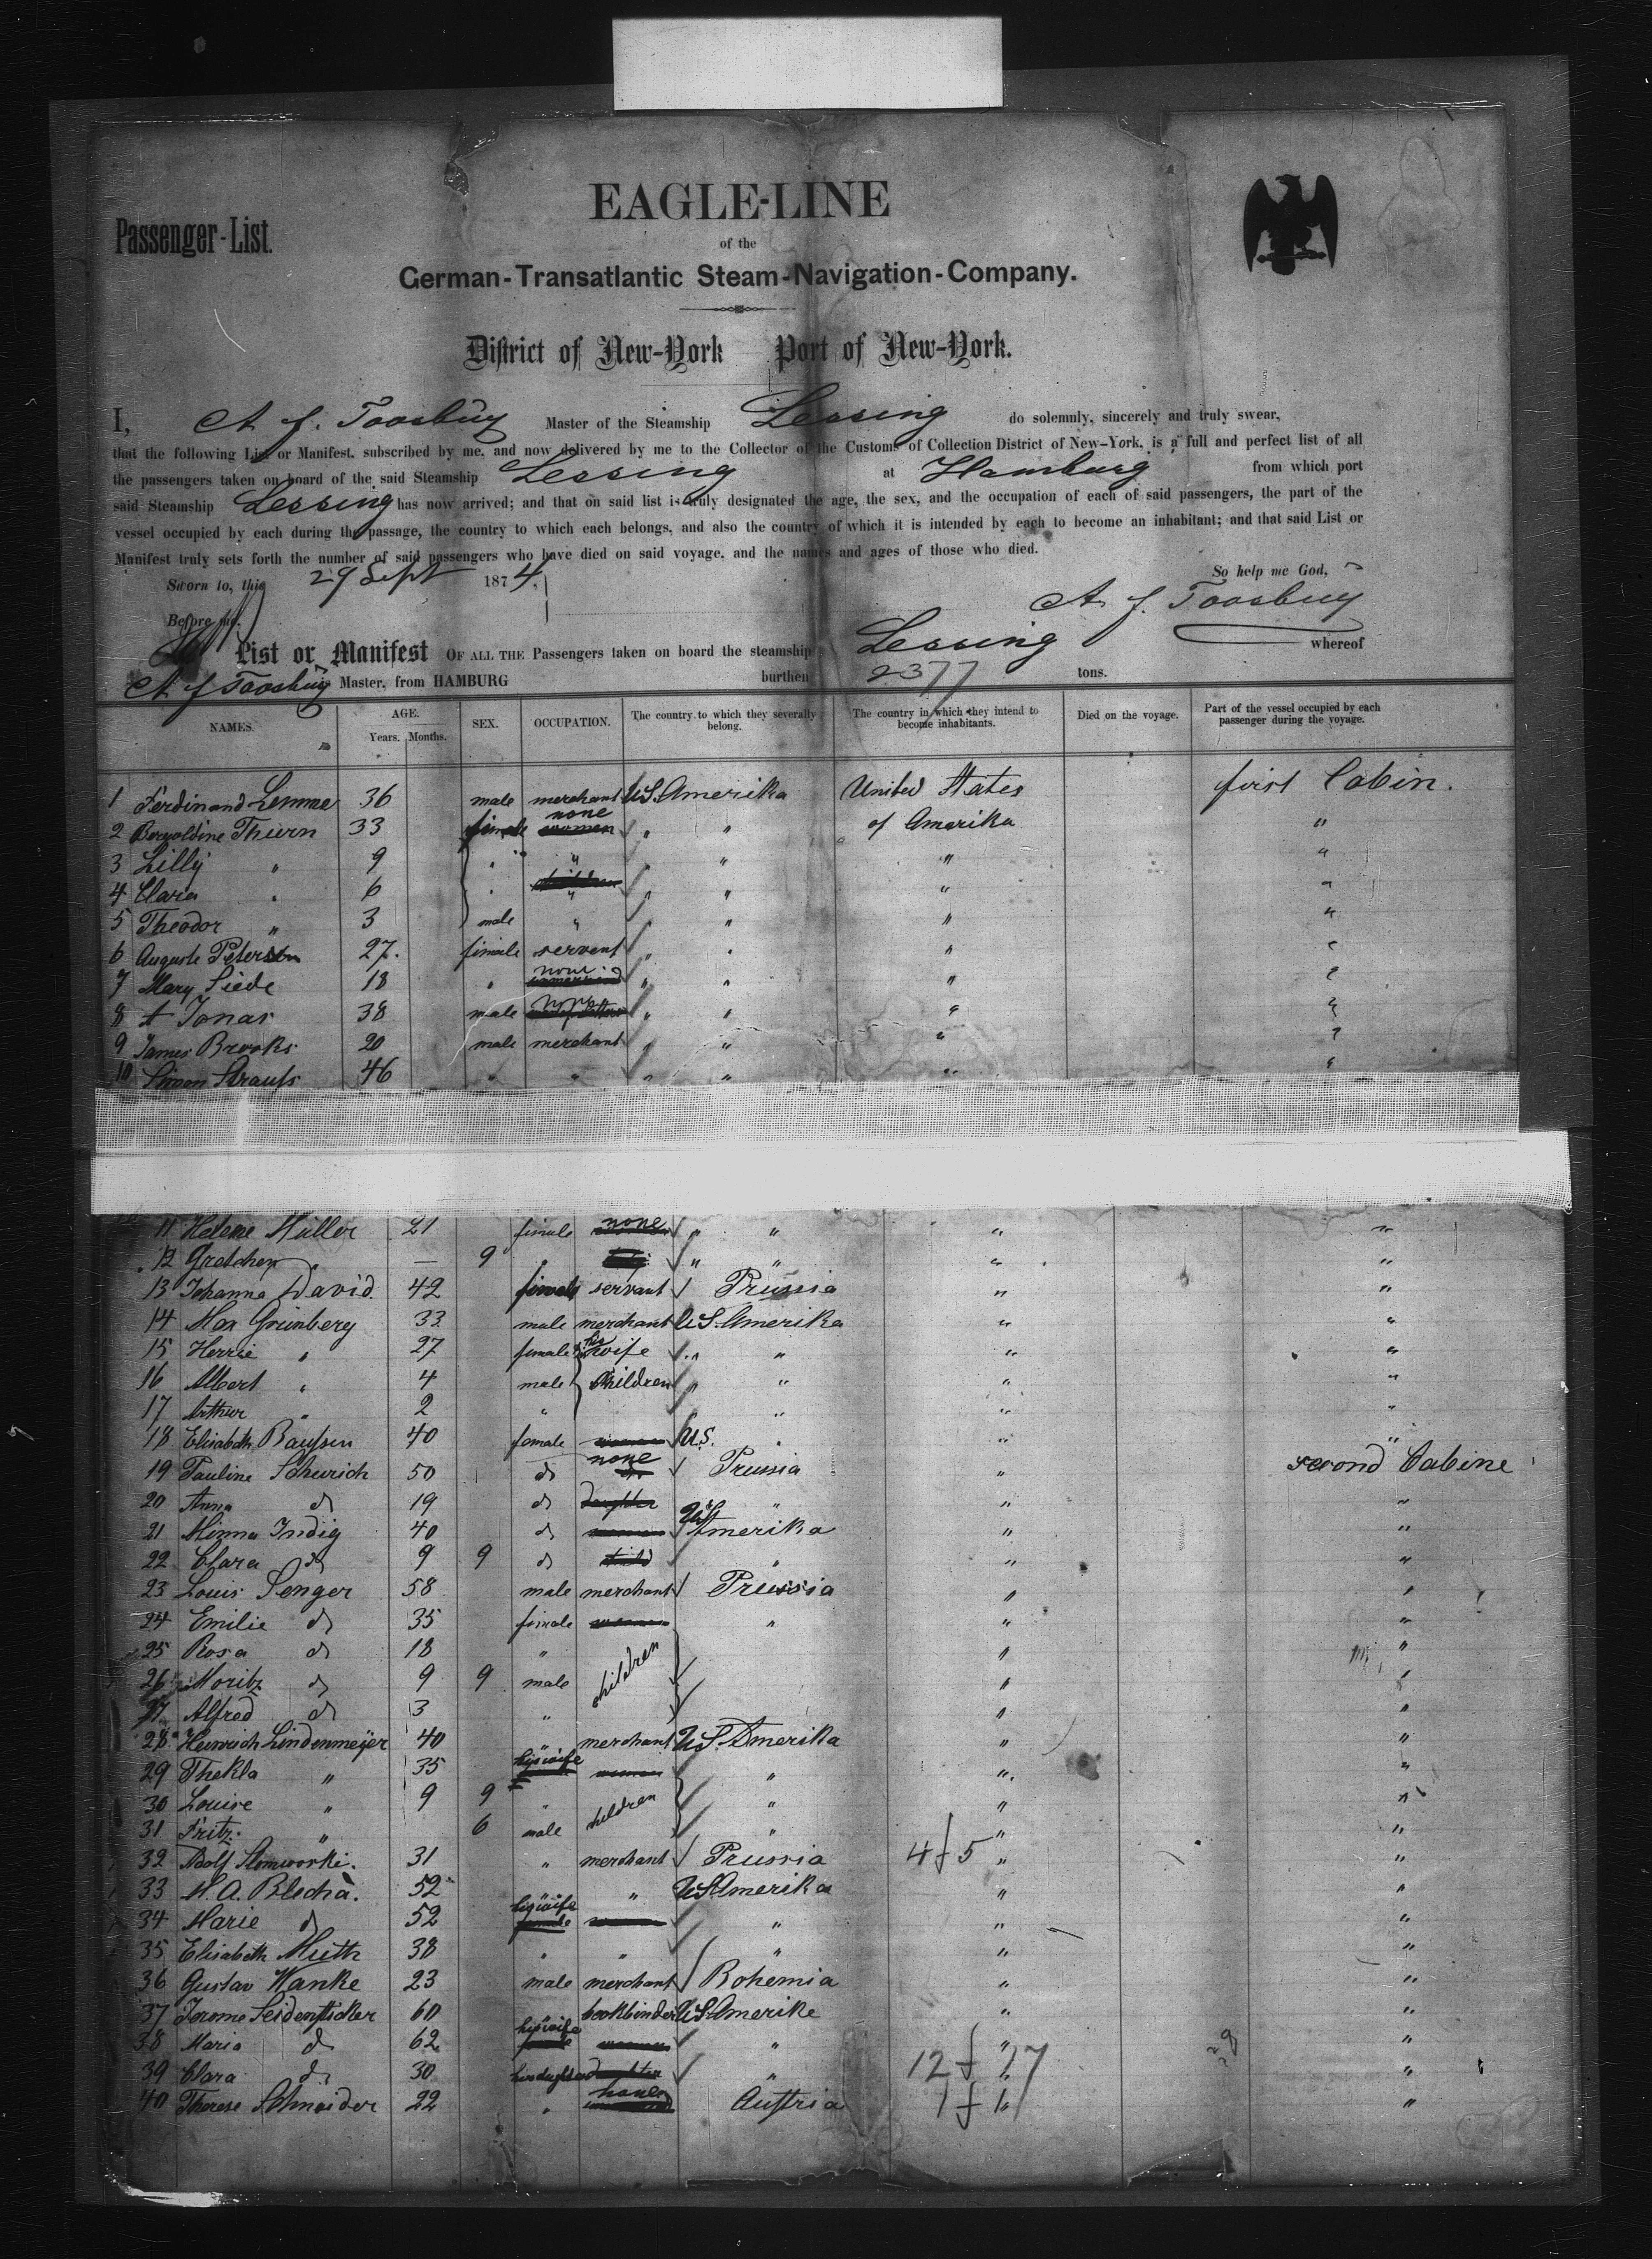 Passenger-List.
EAGLE-LINE
of the
German-Transatlantic Steam-Navigation-Company.
District of New-York Port of New-York.
I, A. f. Toosbuy Master of the Steamship Lessing do solemnly, sincerely and truly swear,
that the following List or Manifest, subscribed by me, and now delivered by me to the Collector of the Customs of Collection District of New-York, is a full and perfect list of all
the passengers taken on board of the said Steamship Lessing at Hamburg from which port
said Steamship Lessing has now arrived; and that on said list is truly designated the age, the sex, and the occupation of each of said passengers, the part of the
vessel occupied by each during the passage, the country to which each belongs, and also the country of which it is intended by each to become an inhabitant; and that said List or
Manifest truly sets forth the number of said passengers who have died on said voyage, and the names and ages of those who died.
So help me God,
Sworn to, this 29 Sept 1874.
A. f. Toosbuy
Before me.
List or Manifest OF ALL THE Passengers taken on board the steamship Lessing whereof
A. f. Toosbuy Master, from HAMBURG burthen 2377 tons.
NAMES. AGE. Years. Months. SEX. OCCUPATION. The country to which they severally belong. The country in which they intend to become inhabitants. Died on the voyage. Part of the vessel occupied by each passenger during the voyage.
1 Ferdinand Lemme 36 male merchant U.S. Amerika United States first Cabin.
2 Thiern 33 female none women " " of Amerika "
3 Lilly " 9 " " " " " "
4 Clara " 6 " children " " " " "
5 Theodor " 3 male " " " " "
6 Auguste Petersen 27. female servent " " " "
7 Mary Siede 18 " none " " " "
8 A Jonas 38 male none " " " "
9 James Brooks 20 male merchant " " " "
10 Simon Strauss 46 " " " " " "
11 Helene Müller 21 female none " " " "
12 Gretchen " — 9 " " " " "
13 Johanna David. 42 female servant Prussia " "
14 Max Grünberg 33 male merchant U.S. Amerika " "
15 Herrie " 27 female his wife " " " "
16 Albert " 4 male children " " " "
17 Arthur " 2 " " " "
18 Elisabeth Baussen 40 female women U.S. " " "
19 Pauline Scheurich 50 d none Prussia " second Cabine
20 Anna d 19 d daughter " " "
21 Minna Indig 40 d women U.S. Amerika " "
22 Clara d 9 9 d child " " "
23 Louis Senger 58 male merchant Prussia " "
24 Emilie d 35 female women " " "
25 Rosa d 18 " children " "
26 Moritz d 9 9 male " "
27 Alfred d 3 " " "
28 Heinrich Lindenmeÿer 40 " merchant U.S. Amerika " "
29 Thekla " 35 his wife women " " "
30 Louise " 9 9 " children " " "
31 Fritz " 6 male " " "
32 Adolf Slomworski. 31 " merchant Prussia 4 f 5 " "
33 M. A. Blecha. 52 " U.S. Amerika " "
34 Marie d 52 his wife female women " " "
35 Elisabeth Muth 38 " " " " "
36 Gustav Hanke 23 male merchant Bohemia " "
37 Jerome 60 " bookbinder U.S. Amerike " "
38 Maria d 62 his wife female women " " "
39 Clara d 30 her daughter daughter " 12 f 17 " "
40 Therese Schneider 22 " none Austria 1 f 1 " "